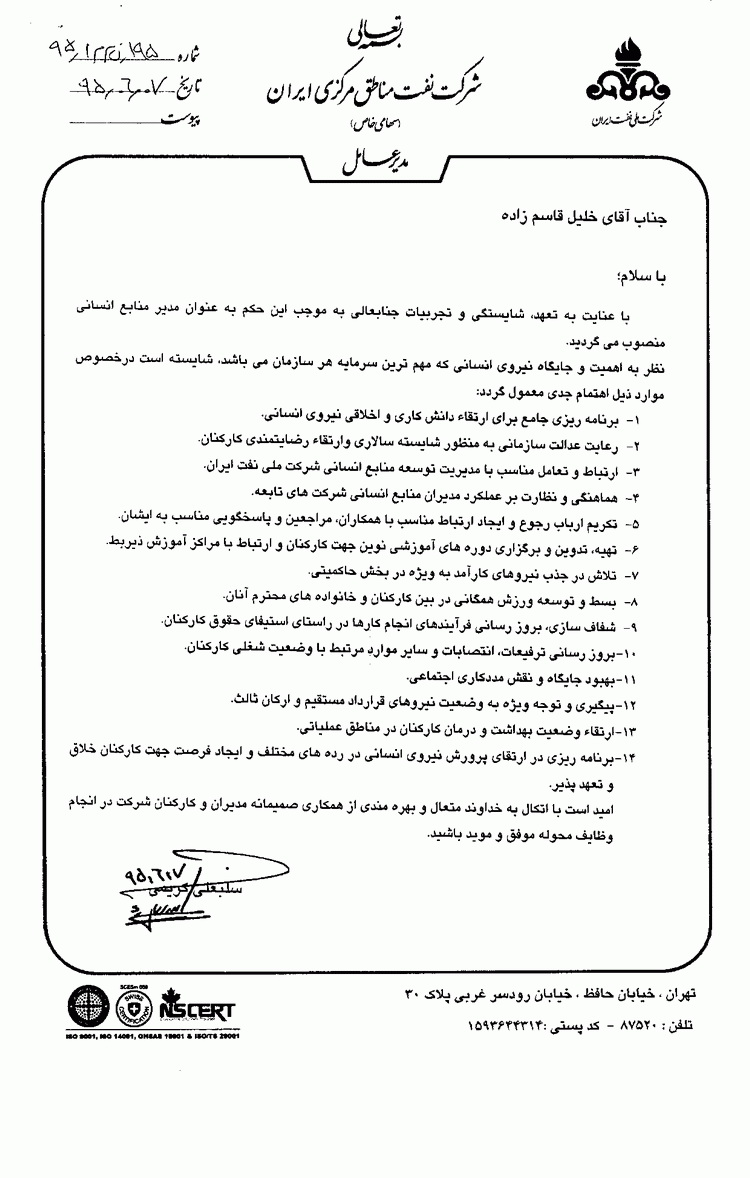 بسمه تعالی
شرکت نفت مناطق مرکزی ایران
(سهامی خاص)
مدیر عامل
شرکت ملی نفت ایران
شماره
تاریخ ۹۵,۶,۰۷
پیوست
جناب آقای خلیل قاسم زاده
با سلام؛
با عنایت به تعهد، شایستگی و تجربیات جنابعالی به موجب این حکم به عنوان مدیر منابع انسانی
منصوب می گردید.
نظر به اهمیت و جایگاه نیروی انسانی که مهم ترین سرمایه هر سازمان می باشد، شایسته است درخصوص
موارد ذیل اهتمام جدی معمول گردد:
۱- برنامه ریزی جامع برای ارتقاء دانش کاری و اخلاقی نیروی انسانی.
۲- رعایت عدالت سازمانی به منظور شایسته سالاری وارتقاء رضایتمندی کارکنان.
۳- ارتباط و تعامل مناسب با مدیریت توسعه منابع انسانی شرکت ملی نفت ایران.
۴- هماهنگی و نظارت بر عملکرد مدیران منابع انسانی شرکت های تابعه.
۵- تکریم ارباب رجوع و ایجاد ارتباط مناسب با همکاران، مراجعین و پاسخگویی مناسب به ایشان.
۶- تهیه، تدوین و برگزاری دوره های آموزشی نوین جهت کارکنان و ارتباط با مراکز آموزش ذیربط.
۷- تلاش در جذب نیروهای کارآمد به ویژه در بخش حاکمیتی.
۸- بسط و توسعه ورزش همگانی در بین کارکنان و خانواده های محترم آنان.
۹- شفاف سازی، بروز رسانی فرآیندهای انجام کارها در راستای استیفای حقوق کارکنان.
۱۰-بروز رسانی ترفیعات، انتصابات و سایر موارد مرتبط با وضعیت شغلی کارکنان.
۱۱-بهبود جایگاه و نقش مددکاری اجتماعی.
۱۲-پیگیری و توجه ویژه به وضعیت نیروهای قرارداد مستقیم و ارکان ثالث.
۱۳-ارتقاء وضعیت بهداشت و درمان کارکنان در مناطق عملیاتی.
۱۴-برنامه ریزی در ارتقای پرورش نیروی انسانی در رده های مختلف و ایجاد فرصت جهت کارکنان خلاق
و تعهد پذیر.
امید است با اتکال به خداوند متعال و بهره مندی از همکاری صمیمانه مدیران و کارکنان شرکت در انجام
وظایف محوله موفق و موید باشید.
۹۵,۶,۷
سلبعلی کریمی
تهران ، خیابان حافظ ، خیابان رودسر غربی پلاک ۳۰
تلفن : ۸۷۵۲۰ - کد پستی :۱۵۹۳۶۴۴۳۱۴
SWISS
CERTIFICATION
NSCERT
ISO 9001, ISO 14001, OHSAS 18001 & ISO/TS 29001